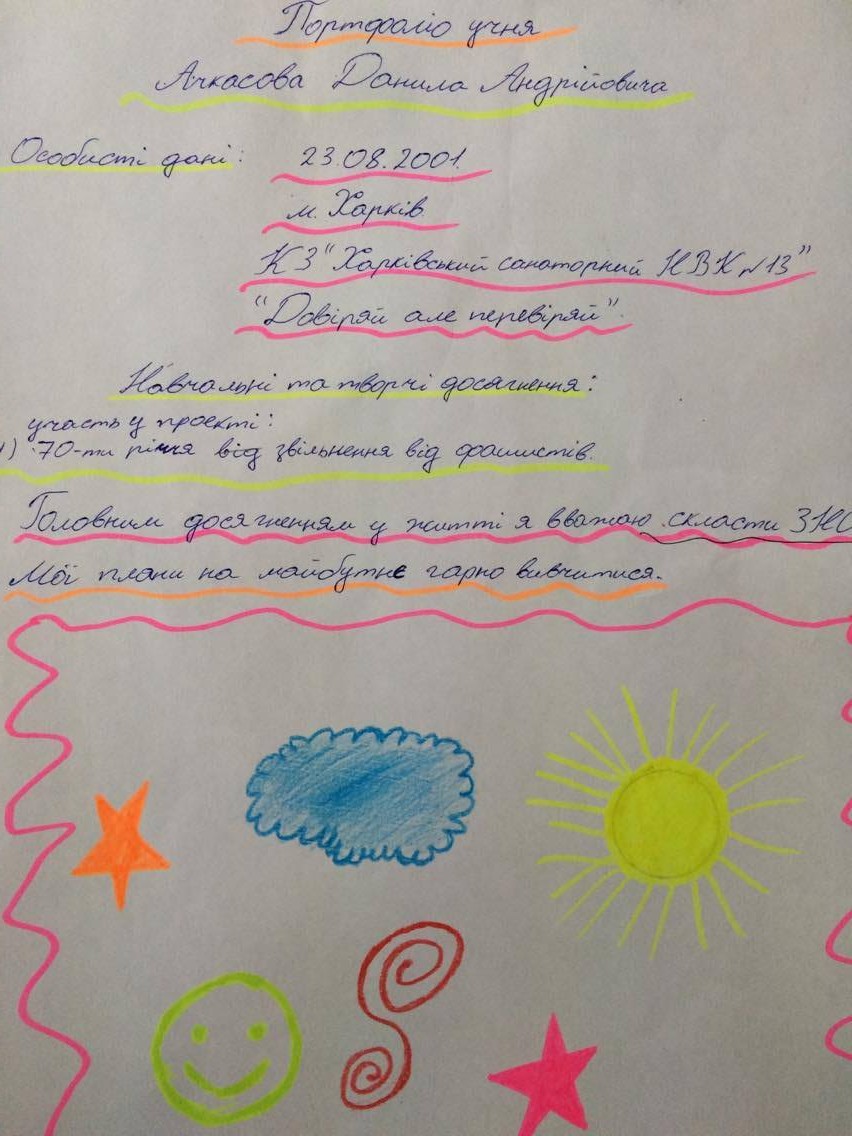 Портфоліо учня
Ачкасова Данила Андрійовича
Особисті дані: 23.08.2001.
м. Харків.
КЗ "Харківський санаторний НВК №13"
"Довіряй але перевіряй".
Навчальні та творчі досягнення:
участь у проекті:
1) 70-ти річчя від звільнення від фашистів.
Головним досягненням у житті я вважаю скласти ЗНО
Мої плани на майбутнє гарно вивчитися.